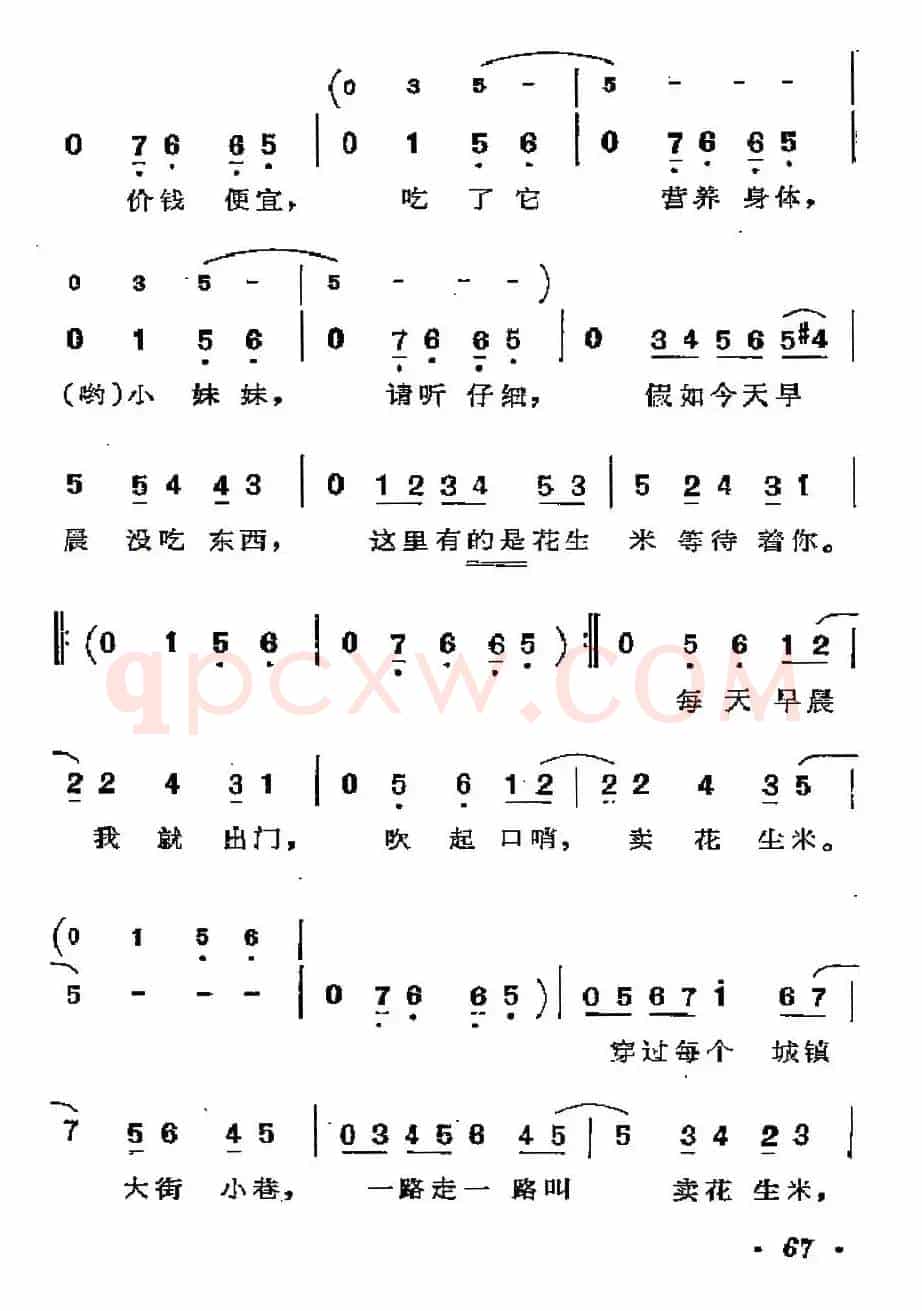 (0 3 5 - | 5 - - -
0 76 65 | 0 1 5 6 | 0 76 65
价钱 便宜， 吃 了 它 营养 身体，
0 3 5 - | 5 - - - )
0 1 5 6 | 0 76 65 | 0 3456 5#4
(哟)小 妹 妹， 请听 仔细， 假如今天早
5 54 43 | 0 1234 53 | 5 24 31 |
晨 没吃 东西， 这里有的是花生 米 等待 着你。
‖: (0 1 5 6 | 0 76 65 ) :‖ 0 5 6 12 |
qpcxw.COM
每 天 早晨
22 4 31 | 0 5 6 12 | 22 4 35 |
我 就 出门， 吹 起 口哨， 卖 花 生米。
(0 1 5 6 |
5 - - - | 0 76 65 ) | 0567 i 67 |
穿过每个 城镇
7 56 45 | 03456 45 | 5 34 23
大街 小巷， 一路走一 路叫 卖花 生米，
· 67 ·